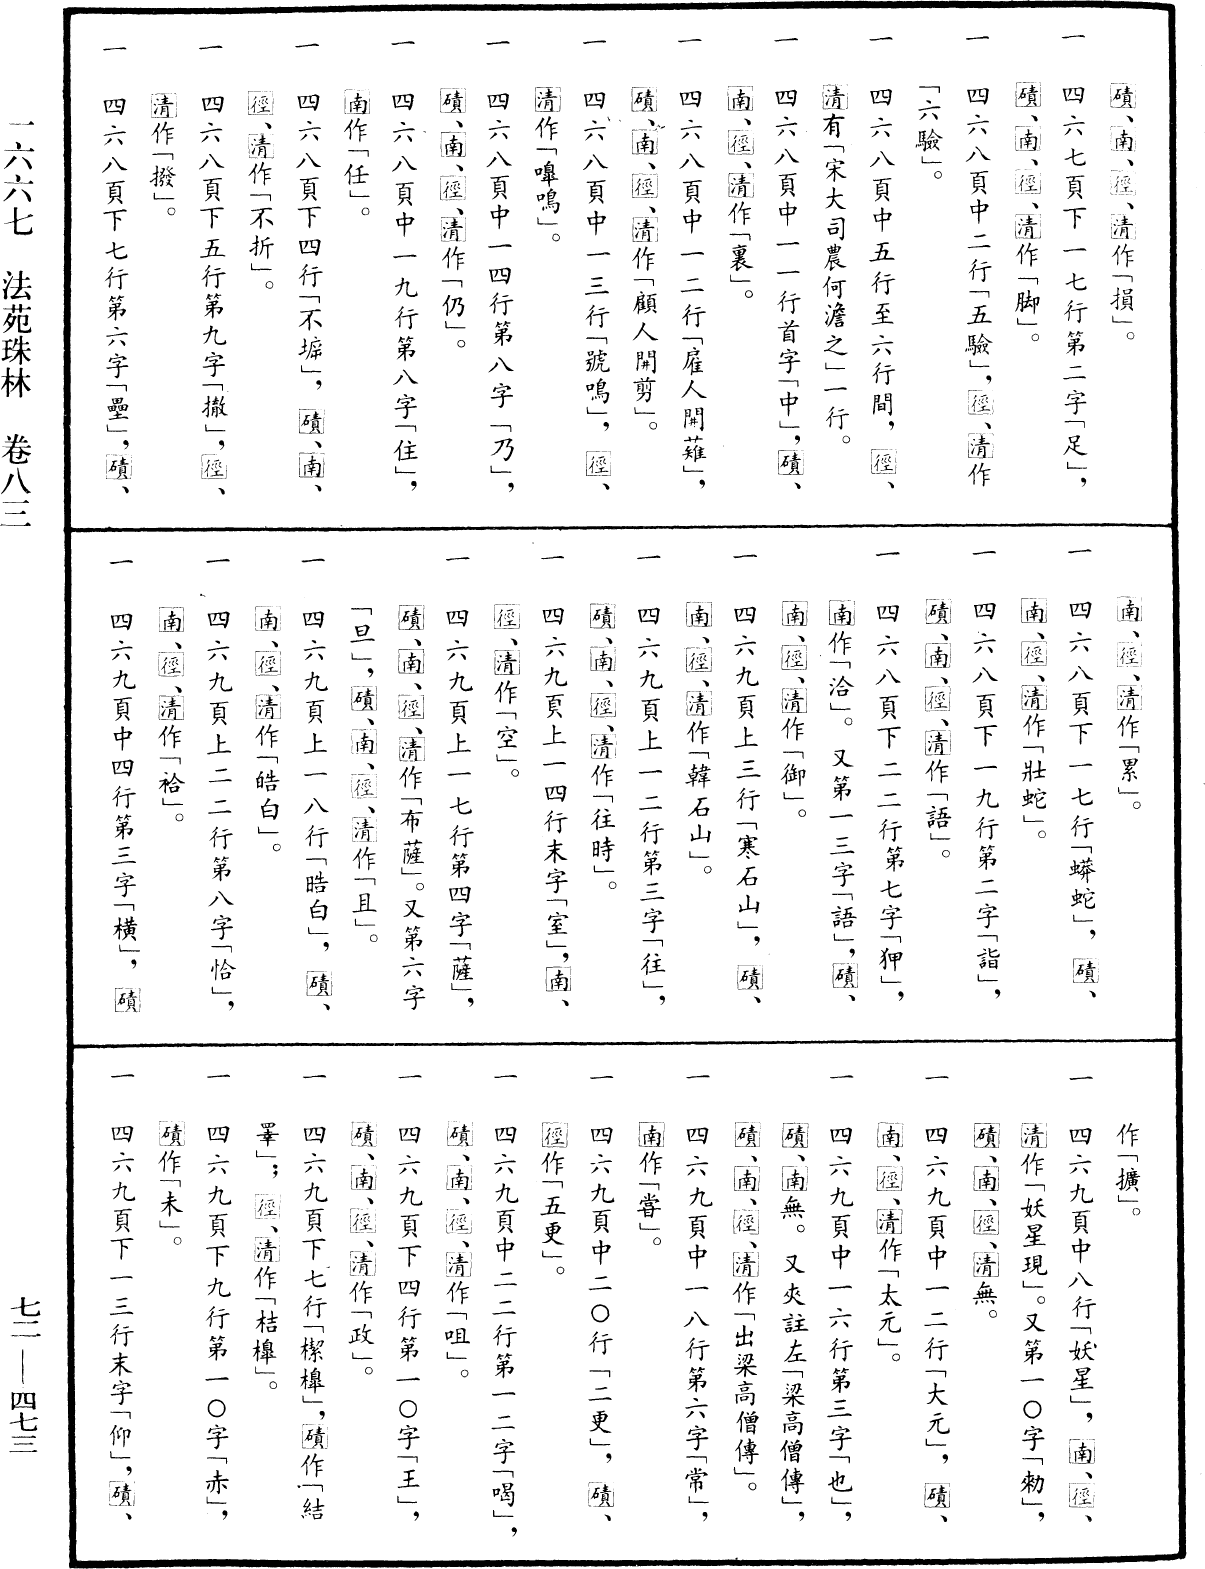 磧、南、徑、清作「損」。
一　四六七頁下一七行第二字「足」，
磧、南、徑、清作「脚」。
一　四六八頁中二行「五驗」，徑、清作
「六驗」。
一　四六八頁中五行至六行間，徑、
清有「宋大司農何澹之」一行。
一　四六八頁中一一行首字「中」，磧、
南、徑、清作「裏」。
一　四六八頁中一二行「雇人開薙」，
磧、南、徑、清作「顧人開剪」。
一　四六八頁中一三行「號鳴」，徑、
清作「嘷鳴」。
一　四六八頁中一四行第八字「乃」，
磧、南、徑、清作「仍」。
一　四六八頁中一九行第八字「住」，
南作「任」。
一　四六八頁下四行「不墲」，磧、南、
徑、清作「不折」。
一　四六八頁下五行第九字「撤」，徑、
清作「撥」。
一　四六八頁下七行第六字「壘」，磧、
南、徑、清作「累」。
一　四六八頁下一七行「蟒蛇」，磧、
南、徑、清作「壯蛇」。
一　四六八頁下一九行第二字「詣」，
磧、南、徑、清作「語」。
一　四六八頁下二二行第七字「狎」，
南作「洽」。又第一三字「語」，磧、
南、徑、清作「御」。
一　四六九頁上三行「寒石山」，磧、
南、徑、清作「韓石山」。
一　四六九頁上一二行第三字「往」，
磧、南、徑、清作「往時」。
一　四六九頁上一四行末字「室」，南、
徑、清作「空」。
一　四六九頁上一七行第四字「薩」，
磧、南、徑、清作「布薩」。又第六字
「旦」，磧、南、徑、清作「且」。
一　四六九頁上一八行「晧白」，磧、
南、徑、清作「皓白」。
一　四六九頁上二二行第八字「恰」，
南、徑、清作「袷」。
一　四六九頁中四行第三字「横」，磧
作「擴」。
一　四六九頁中八行「妖星」，南、徑、
清作「妖星現」。又第一〇字「勑」，
磧、南、徑、清無。
一　四六九頁中一二行「大元」，磧、
南、徑、清作「太元」。
一　四六九頁中一六行第三字「也」，
磧、南無。又夾註左「梁高僧傳」，
磧、南、徑、清作「出梁高僧傳」。
一　四六九頁中一八行第六字「常」，
南作「嘗」。
一　四六九頁中二〇行「二更」，磧、
徑作「五更」。
一　四六九頁中二二行第一二字「喝」，
磧、南、徑、清作「咀」。
一　四六九頁下四行第一〇字「王」，
磧、南、徑、清作「政」。
一　四六九頁下七行「樏槔」，磧作「結
睪」；徑、清作「桔槔」。
一　四六九頁下九行第一〇字「赤」，
磧作「未」。
一　四六九頁下一三行末字「仰」，磧、
一六六七　法苑珠林　卷八三
七二—四七三